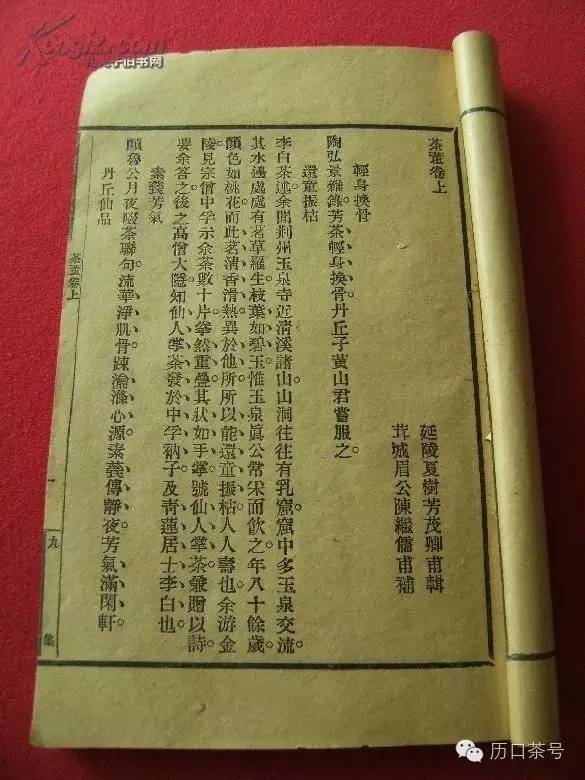 Kongfz.com
孔夫子旧书网
茶董卷上
延陵夏樹芳茂卿甫輯
茸城眉公陳繼儒甫補
輕身換骨
陶弘景雜錄芳茶輕身換骨丹丘子黃山君嘗服之。
還童振枯
李白茶述余聞荊州玉泉寺近淸溪諸山山洞往往有乳窟窟中多玉泉交流。
其水邊處處有茗草羅生枝葉如碧玉惟玉泉眞公常采而飮之年八十餘歲。
顏色如桃花而此茗淸香滑熟異於他所所以能還童振枯人人壽也余游金
陵見宗僧中孚示余茶數十片拳然重疊其狀如手掌號仙人掌茶兼贈以詩
要余答之後之高僧大隱知仙人掌茶發於中孚衲子及靑蓮居士李白也
素薆芳氣
顏魯公月夜啜茶聯句流華淨肌骨疎瀹滌心源素薆傳靜夜芳氣滿閑軒
丹丘仙品
茶董卷上
九
集
历口茶号